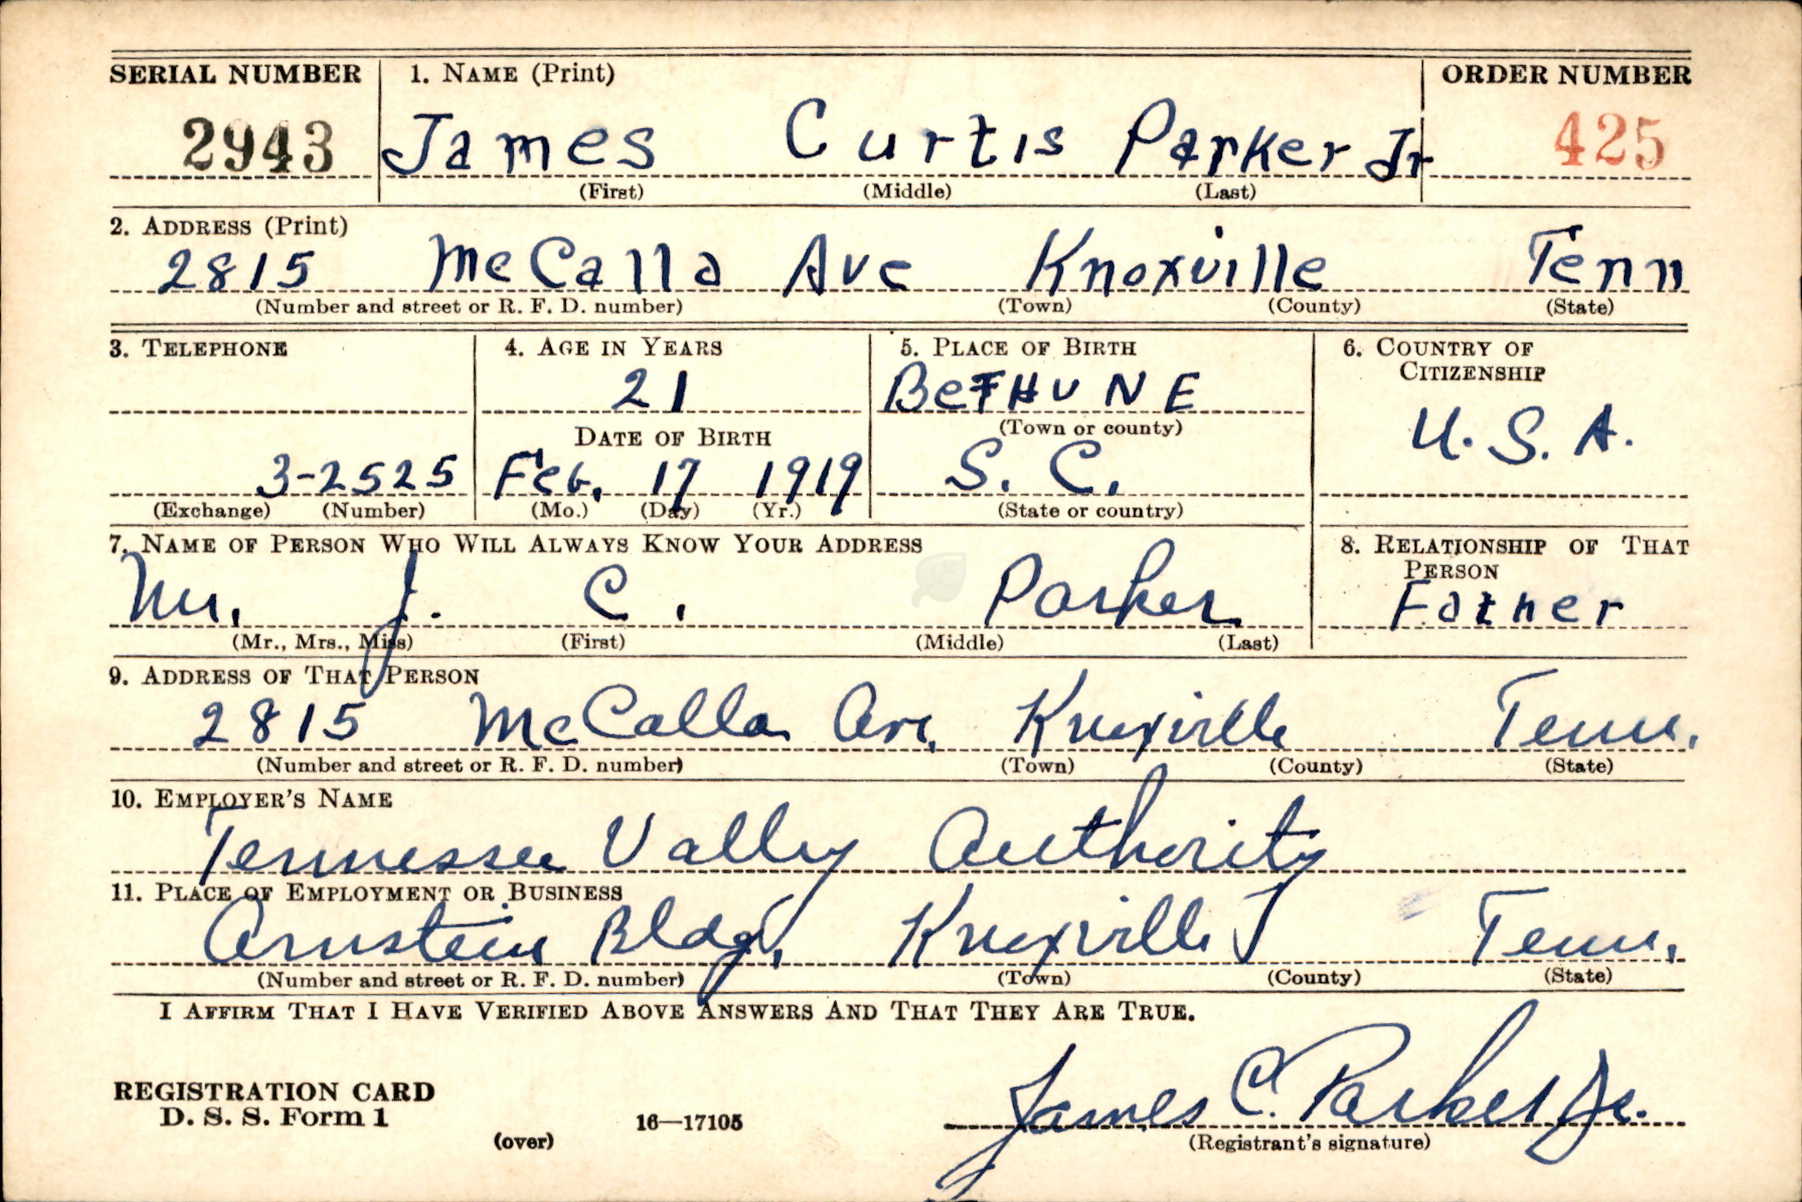 SERIAL NUMBER 1. NAME (Print) ORDER NUMBER
2943 James Curtis Parker Jr 425
(First) (Middle) (Last)
2. ADDRESS (Print)
2815 McCalla Ave Knoxville Tenn
(Number and street or R. F. D. number) (Town) (County) (State)
3. TELEPHONE 4. AGE IN YEARS 5. PLACE OF BIRTH 6. COUNTRY OF
CITIZENSHIP
21 BeTHUNE
(Town or county)
U. S. A.
DATE OF BIRTH
3-2525 Feb. 17 1919 S. C.
(Exchange) (Number) (Mo.) (Day) (Yr.) (State or country)
7. NAME OF PERSON WHO WILL ALWAYS KNOW YOUR ADDRESS 8. RELATIONSHIP OF THAT
PERSON
Mr. J. C. Parker Father
(Mr., Mrs., Miss) (First) (Middle) (Last)
9. ADDRESS OF THAT PERSON
2815 McCalla Ave. Knoxville Tenn.
(Number and street or R. F. D. number) (Town) (County) (State)
10. EMPLOYER'S NAME
Tennessee Valley Authority
11. PLACE OF EMPLOYMENT OR BUSINESS
Arnstein Bldg. Knoxville Tenn.
(Number and street or R. F. D. number) (Town) (County) (State)
I AFFIRM THAT I HAVE VERIFIED ABOVE ANSWERS AND THAT THEY ARE TRUE.
James C. Parker Jr.
REGISTRATION CARD
D. S. S. Form 1
(over) 16—17105 (Registrant's signature)